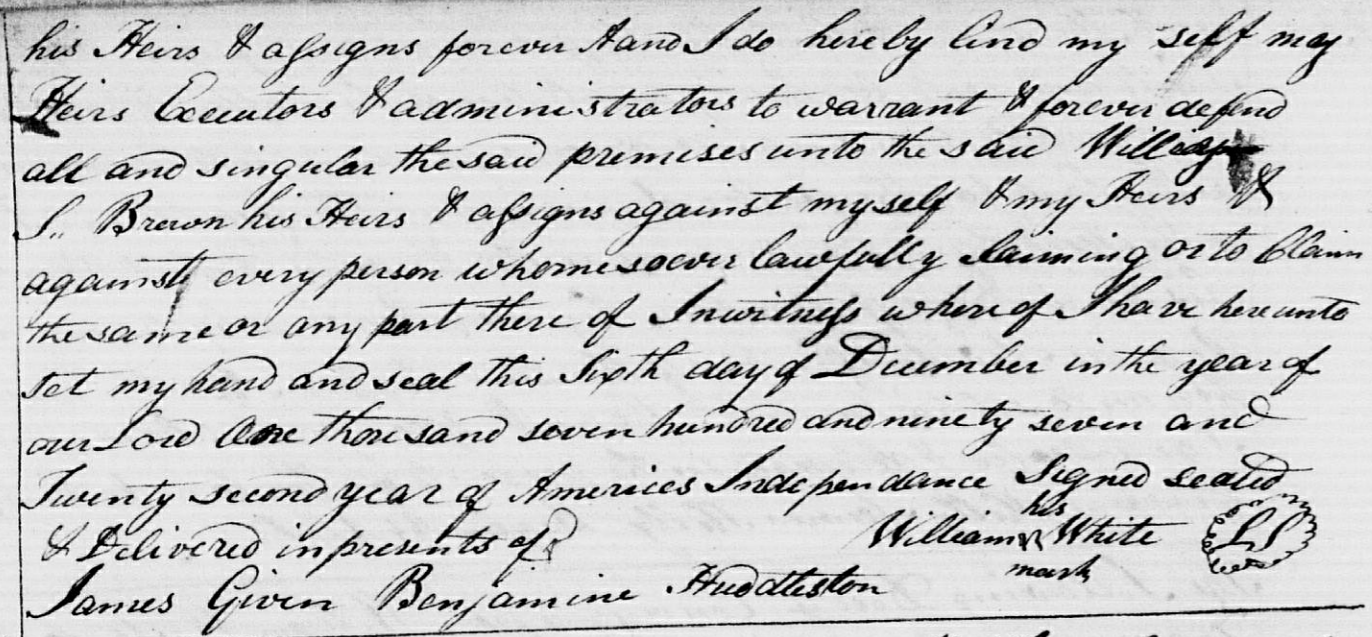 his Heirs & assigns forever & and I do hereby bind my self may
Heirs Executors & administrators to warrant & forever defend
all and singular the said premises unto the said William
S. Brown his Heirs & assigns against my self & my Heirs &
against every person whomesoever lawfully claiming or to claim
the same or any part there of In witness where of I have here unto
set my hand and seal this Sixth day of December in the year of
our Lord One thousand seven hundred and ninety seven and
Twenty second year of Americes Independance Signed sealed
& Delivered in presents of
his
William White LS
mark
James Given Benjamine Huddleston